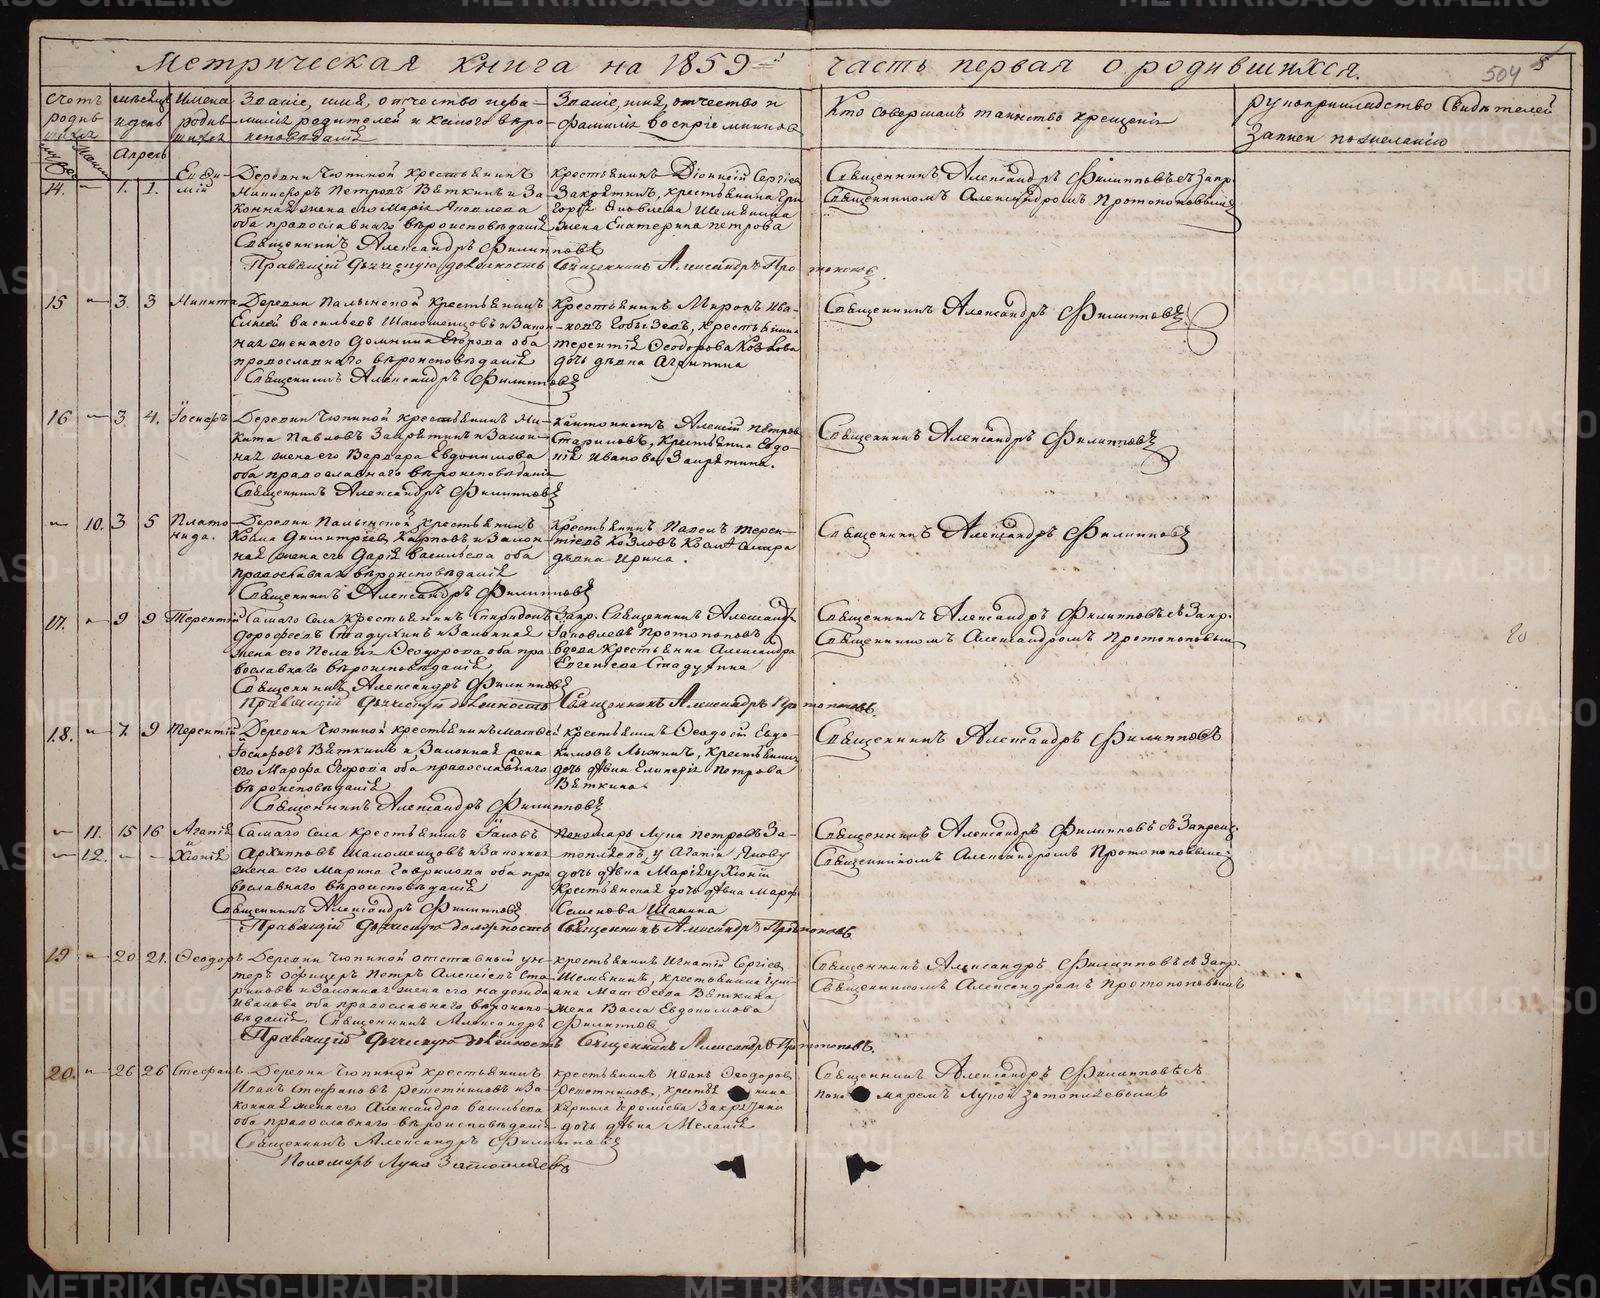 Метрическая книга на 1859й часть первая о родившихся.
504
5
Счетъ родив-шихся
Мужес:
Женс:
месяцъ и день
Апрель
Имена родив-шихся
Званіе, имя, отчество и фа-
милія родителей и какого веро-
исповеданія
Званіе, имя, отчество и
фамилія воспріемниковъ
Кто совершалъ таинство крещенія
Рукоприкладство Свидетелей
Записи по желанію
14. " 1. 1. Евфи-
мій
Деревни Чюпиной крестьянинъ
Никифоръ Петровъ Вяткинъ и За-
конная жена его Марія Яковлева
оба православнаго вероисповеданія
Священникъ Александръ Филипповъ
Правящій Дьяческую должность Священникъ Александръ Протопоповъ
Крестьянинъ Діонисій Сергіев
Закрятинъ, крестьянина Гри
горія Яковлева Шемякина
жена Екатерина Петрова
Священникъ Александръ Филипповъ съ Запр.
Священникомъ Александромъ Протопоповымъ
15 " 3. 3 Никита
Деревни Палкинской Крестьянинъ
Елисей Васильевъ Шаломенцовъ и Закон-
ная жена его Домнина Егорова оба
православнаго вероисповеданія
Священникъ Александръ Филипповъ
Крестьянинъ Миронъ Ива-
новъ, крестьянина
Терентія Феодорова Козлова
дочь девка Агрипина
Священникъ Александръ Филипповъ
16 " 3 4. Іосифъ
Деревни Чюпиной крестьянинъ Ни-
кита Павловъ Закрятинъ и Закон-
ная жена его Варвара Евдокимова
оба православнаго вероисповеданія
Священникъ Александръ Филипповъ
Кантонистъ Алексій Петров
Стариковъ, Крестьянка Евдо-
кія Иванова Закрятина.
Священникъ Александръ Филипповъ
" 10. 3 5 Плато-
нида.
Деревни Палкинской крестьянинъ
Козма Димитріевъ Карповъ и Закон-
ная жена его Дарія Васильева оба
православнаго вероисповеданія
Священникъ Александръ Филипповъ
Крестьянинъ Павелъ Терен-
тіевъ Козловъ
девка Ирина.
Священникъ Александръ Филипповъ
17. " 9 9 Терентій
Самаго Села Крестьянинъ Спиридонъ
Дорофеевъ Стадухинъ и Законная
жена его Пелагія Феодорова оба пра
вославнаго вероисповеданія
Священникъ Александръ Филипповъ
Правящій Дьяческую должность Священникъ Александръ Протопоповъ.
Запр. Священникъ Александръ
Іаковлевъ Протопоповъ
вдова Крестьянка Александра
Евгеніева Стадухина
Священникъ Александръ Филипповъ съ Запр.
Священникомъ Александромъ Протопоповымъ
18. " 7 9 Терентій
Деревни Чюпиной крестьянинъ Матфей
Іосифовъ Вяткинъ и Законная жена
его Марфа Егорова оба православнаго
вероисповеданія
Священникъ Александръ Филипповъ
крестьянинъ Феодосій Евдо-
кимовъ Лыжинъ, Крестьянина
дочь девка Гликерія Петрова
Вяткина.
Священникъ Александръ Филипповъ
" 11. 15 16 Агапія
и
" 12. " " Хіонія
Самаго Села Крестьянинъ Іаковъ
Архиповъ Шаломенцовъ и Законная
жена его Марина Гаврилова оба пра
вославнаго вероисповеданія
Священникъ Александръ Филипповъ
Правящій Дьяческую должность Священникъ Александръ Протопоповъ
Пономарь Лука Петровъ За-
топляевъ, у Агапіи
дочь девка Марія, у Хіоніи
Крестьянская дочь девка Марфа
Семенова Шанина
Священникъ Александръ Филипповъ съ Запрещ:
Священникомъ Александромъ Протопоповымъ
19 " 20 21. Феодоръ
Деревни Чюпиной отставный ун-
теръ офицеръ Петръ Алексіевъ Ста-
риковъ и Законная жена его Надежда
Иванова оба православнаго вероиспо-
веданія, Священникъ Александръ Филиппов
Правящій Дьяческую должность Священникъ Александръ Протопоповъ.
крестьянинъ Игнатій Сергіев
Шемякинъ, крестьянина
Матфеева Вяткина
жена Васса Евдокимова
Священникъ Александръ Филипповъ съ Запр.
Священникомъ Александромъ Протопоповымъ
20. " 26 26 Стефанъ
Деревни Чюпиной крестьянинъ
Иванъ Стефановъ Решетниковъ и За-
конная жена его Александра Васильева
оба православнаго вероисповеданія
Священникъ Александръ Филипповъ
Пономарь Лука Затопляевъ
крестьянинъ Иванъ Феодоров
Решетников, крестьянина
Кирила Закрятина
дочь девка Меланія
Священникъ Александръ Филипповъ съ
пономаремъ Лукой Затопляевымъ
METRIKI.GASO-URAL.RU